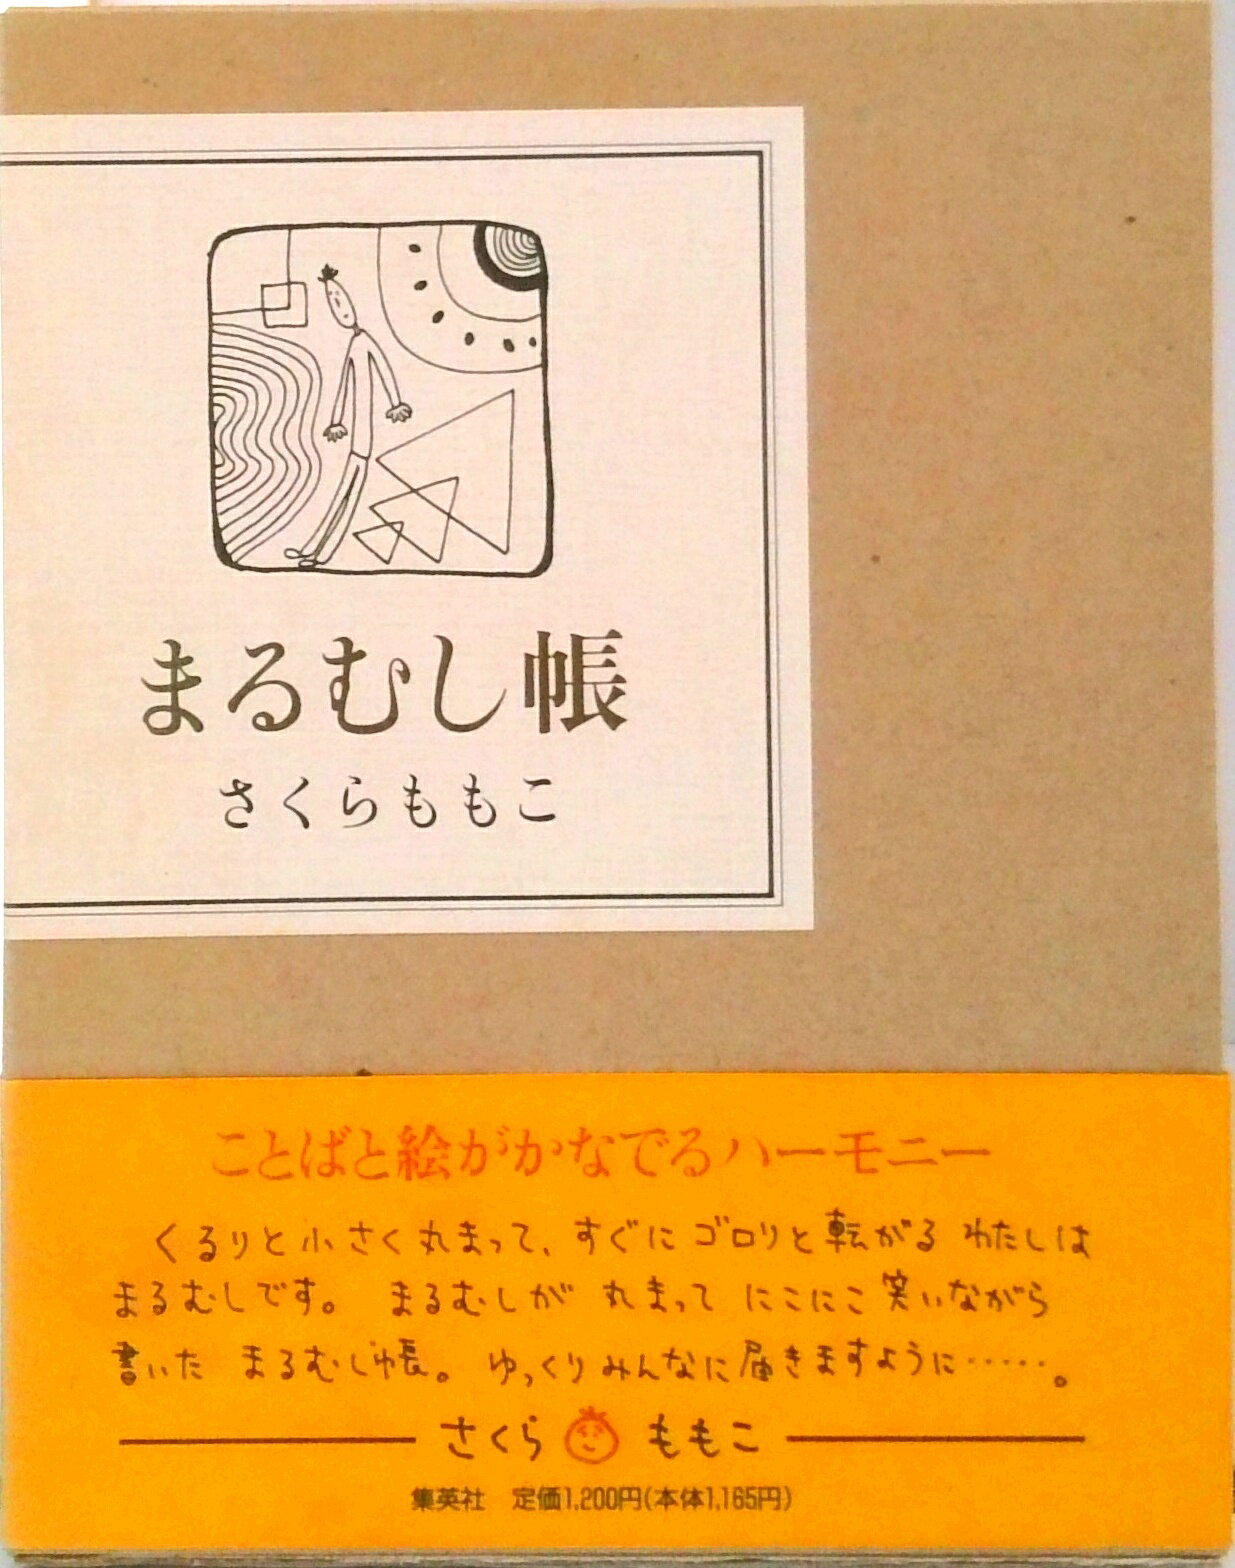 まるむし帳
さくらももこ
ことばと絵がかなでるハーモニー
くるりと小さく丸まって、すぐにゴロリと転がるわたしは
まるむしです。 まるむしが 丸まって にこにこ笑いながら
書いた まるむし帳。 ゆっくりみんなに届きますように……。
さくら ももこ
集英社 定価1,200円(本体1,165円)